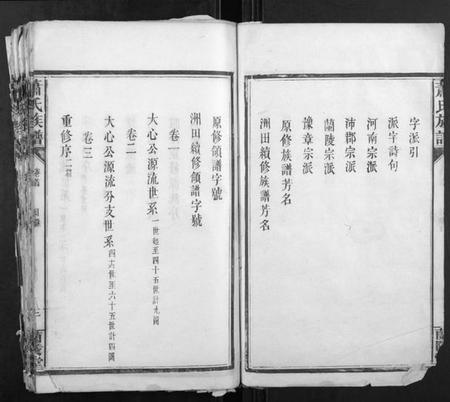 字派引
派字詩句
河南宗派
沛郡宗派
蘭陵宗派
豫章宗派
原修族譜芳名
洲田續修族譜芳名
原修領譜字號
洲田續修領譜字號
卷一
大心公源流世系 一世起至四十五世計九圖
卷二
大心公源流分支世系 四六世至六十五世計四圖
卷三
重修序二篇
蕭氏族譜